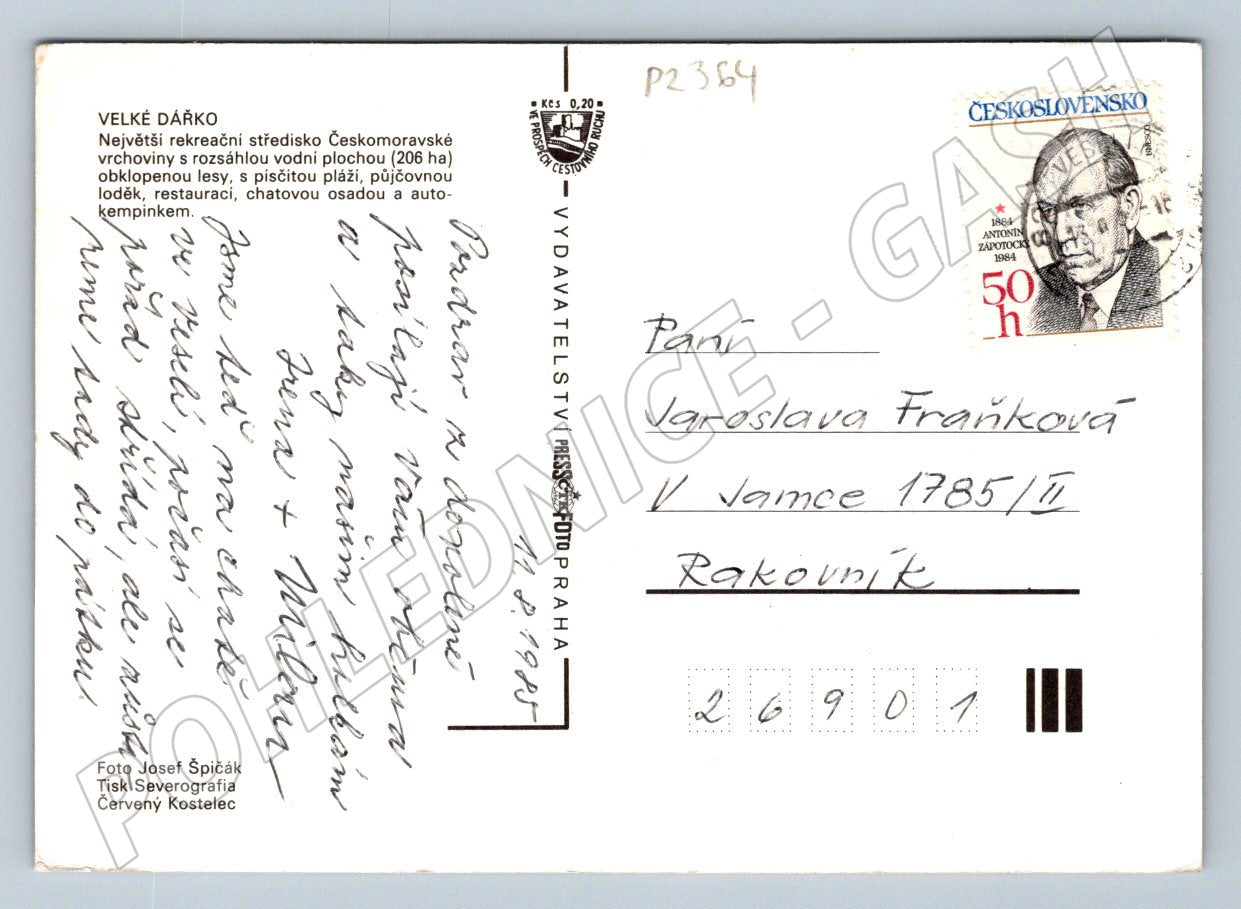 VELKÉ DÁŘKO
Největší rekreační středisko Českomoravské
vrchoviny s rozsáhlou vodní plochou (206 ha)
obklopenou lesy, s písčitou pláží, půjčovnou
loděk, restaurací, chatovou osadou a auto-
kempinkem.
Pozdrav z dovolené
posílají Vám oběma
a taky našim
Irena + Milan
Jsme teď na chatě
ve veselí, počasí se
pořád střídá, ale
tady do pátku.
11.8.1985
Foto Josef Špičák
Tisk Severografia
Červený Kostelec
Kčs 0,20
VE PROSPĚCH CESTOVNÍHO RUCHU
VYDAVATELSTVÍ PRESSFOTO PRAHA
ČTK
P2364
ČESKOSLOVENSKO
1884
ANTONÍN
ZÁPOTOCKÝ
1984
50
h
Paní
Jaroslava Fraňková
V Jamce 1785/II
Rakovník
26901
POHLEDNICE - GASH